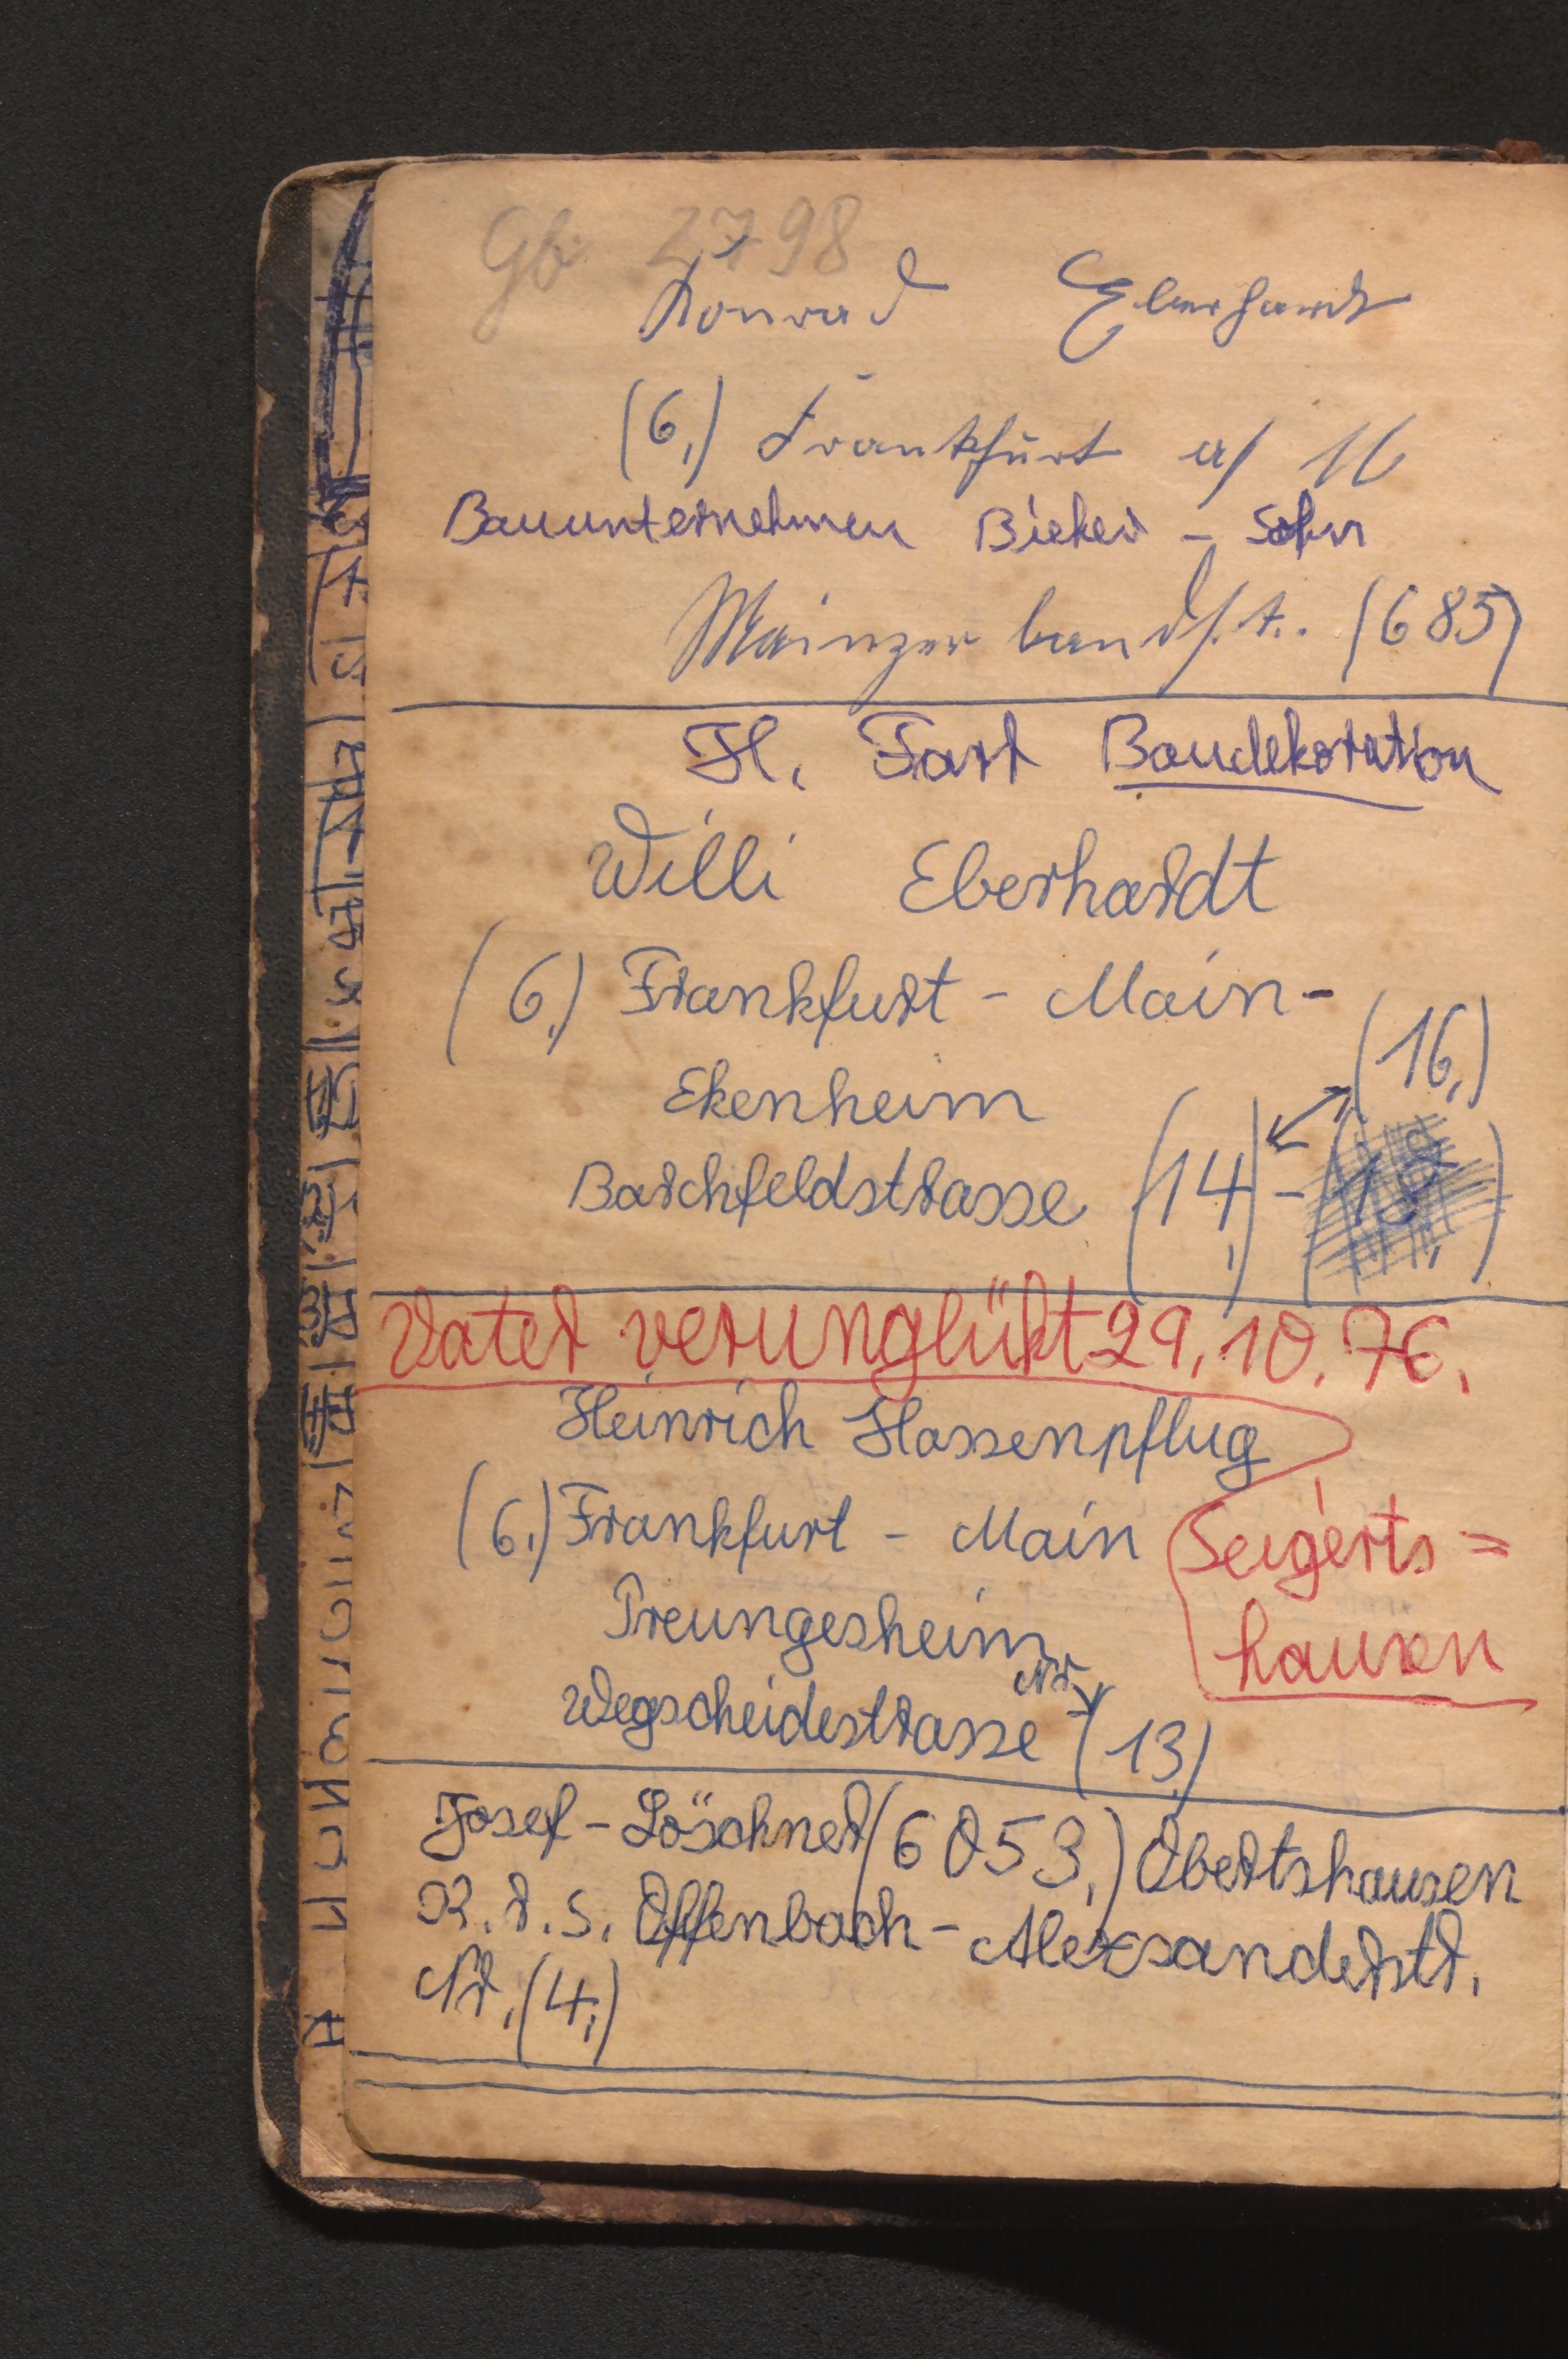 Gb 2798
Konrad Eberhardt
(6,) Frankfurt a/ M
Bauunternehmen Bieker - Sohn
Mainzer landst.. (685)
H. Fart Baudekoration
Willi Eberhardt
(6,) Frankfurt - Main -
(16,)
Ekenheim
Barchfeldstrasse (14,) -
Vater verunglükt 29,10.76.
Heinrich Hassenpflug
(6,) Frankfurt - Main
Seigerts =
Preungesheim
hausen
Nr.
Wegscheidestrasse (13)
Josef - Löschner (6053,) Obertshausen
K.r.s. Offenbach - Alexsanderstr.
Nr. (4,)